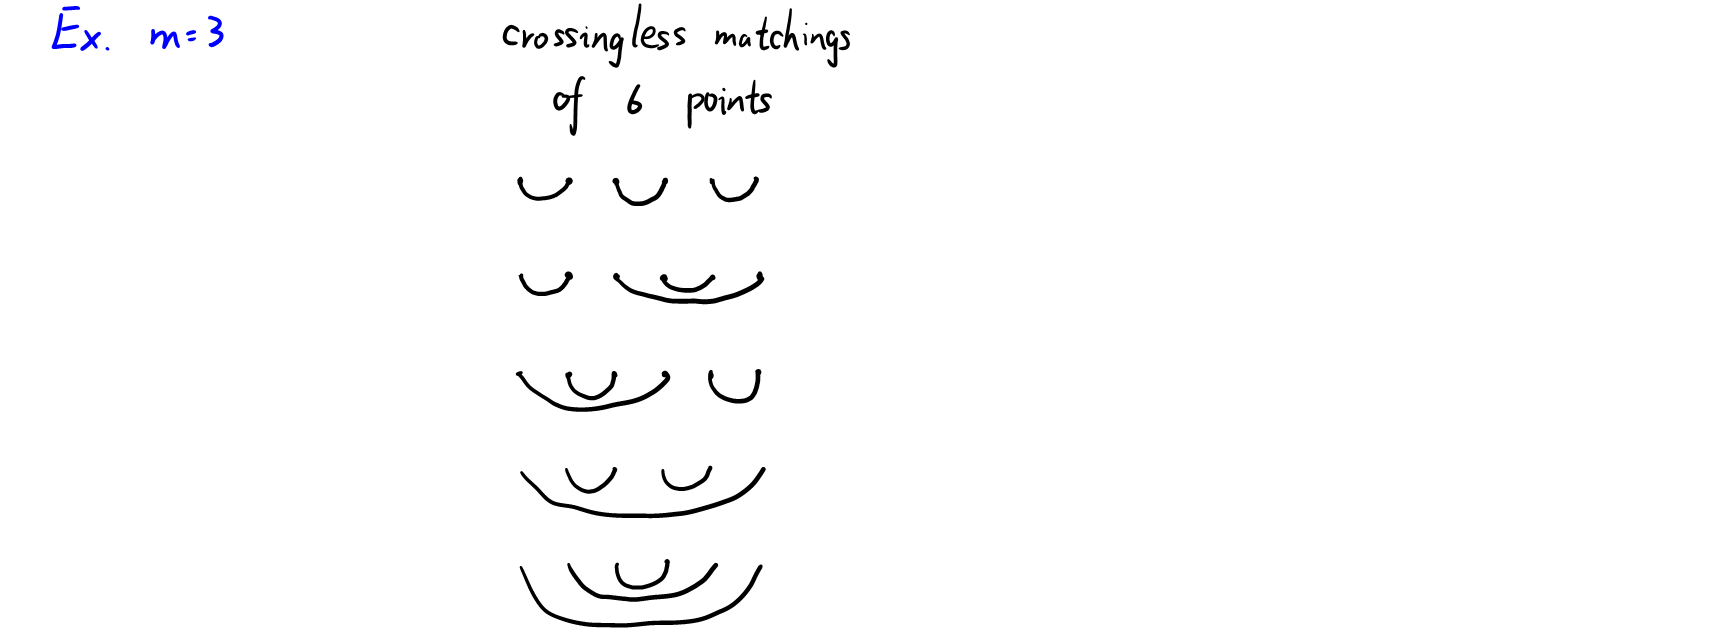 Ex. m=3
crossingless matchings
of 6 points